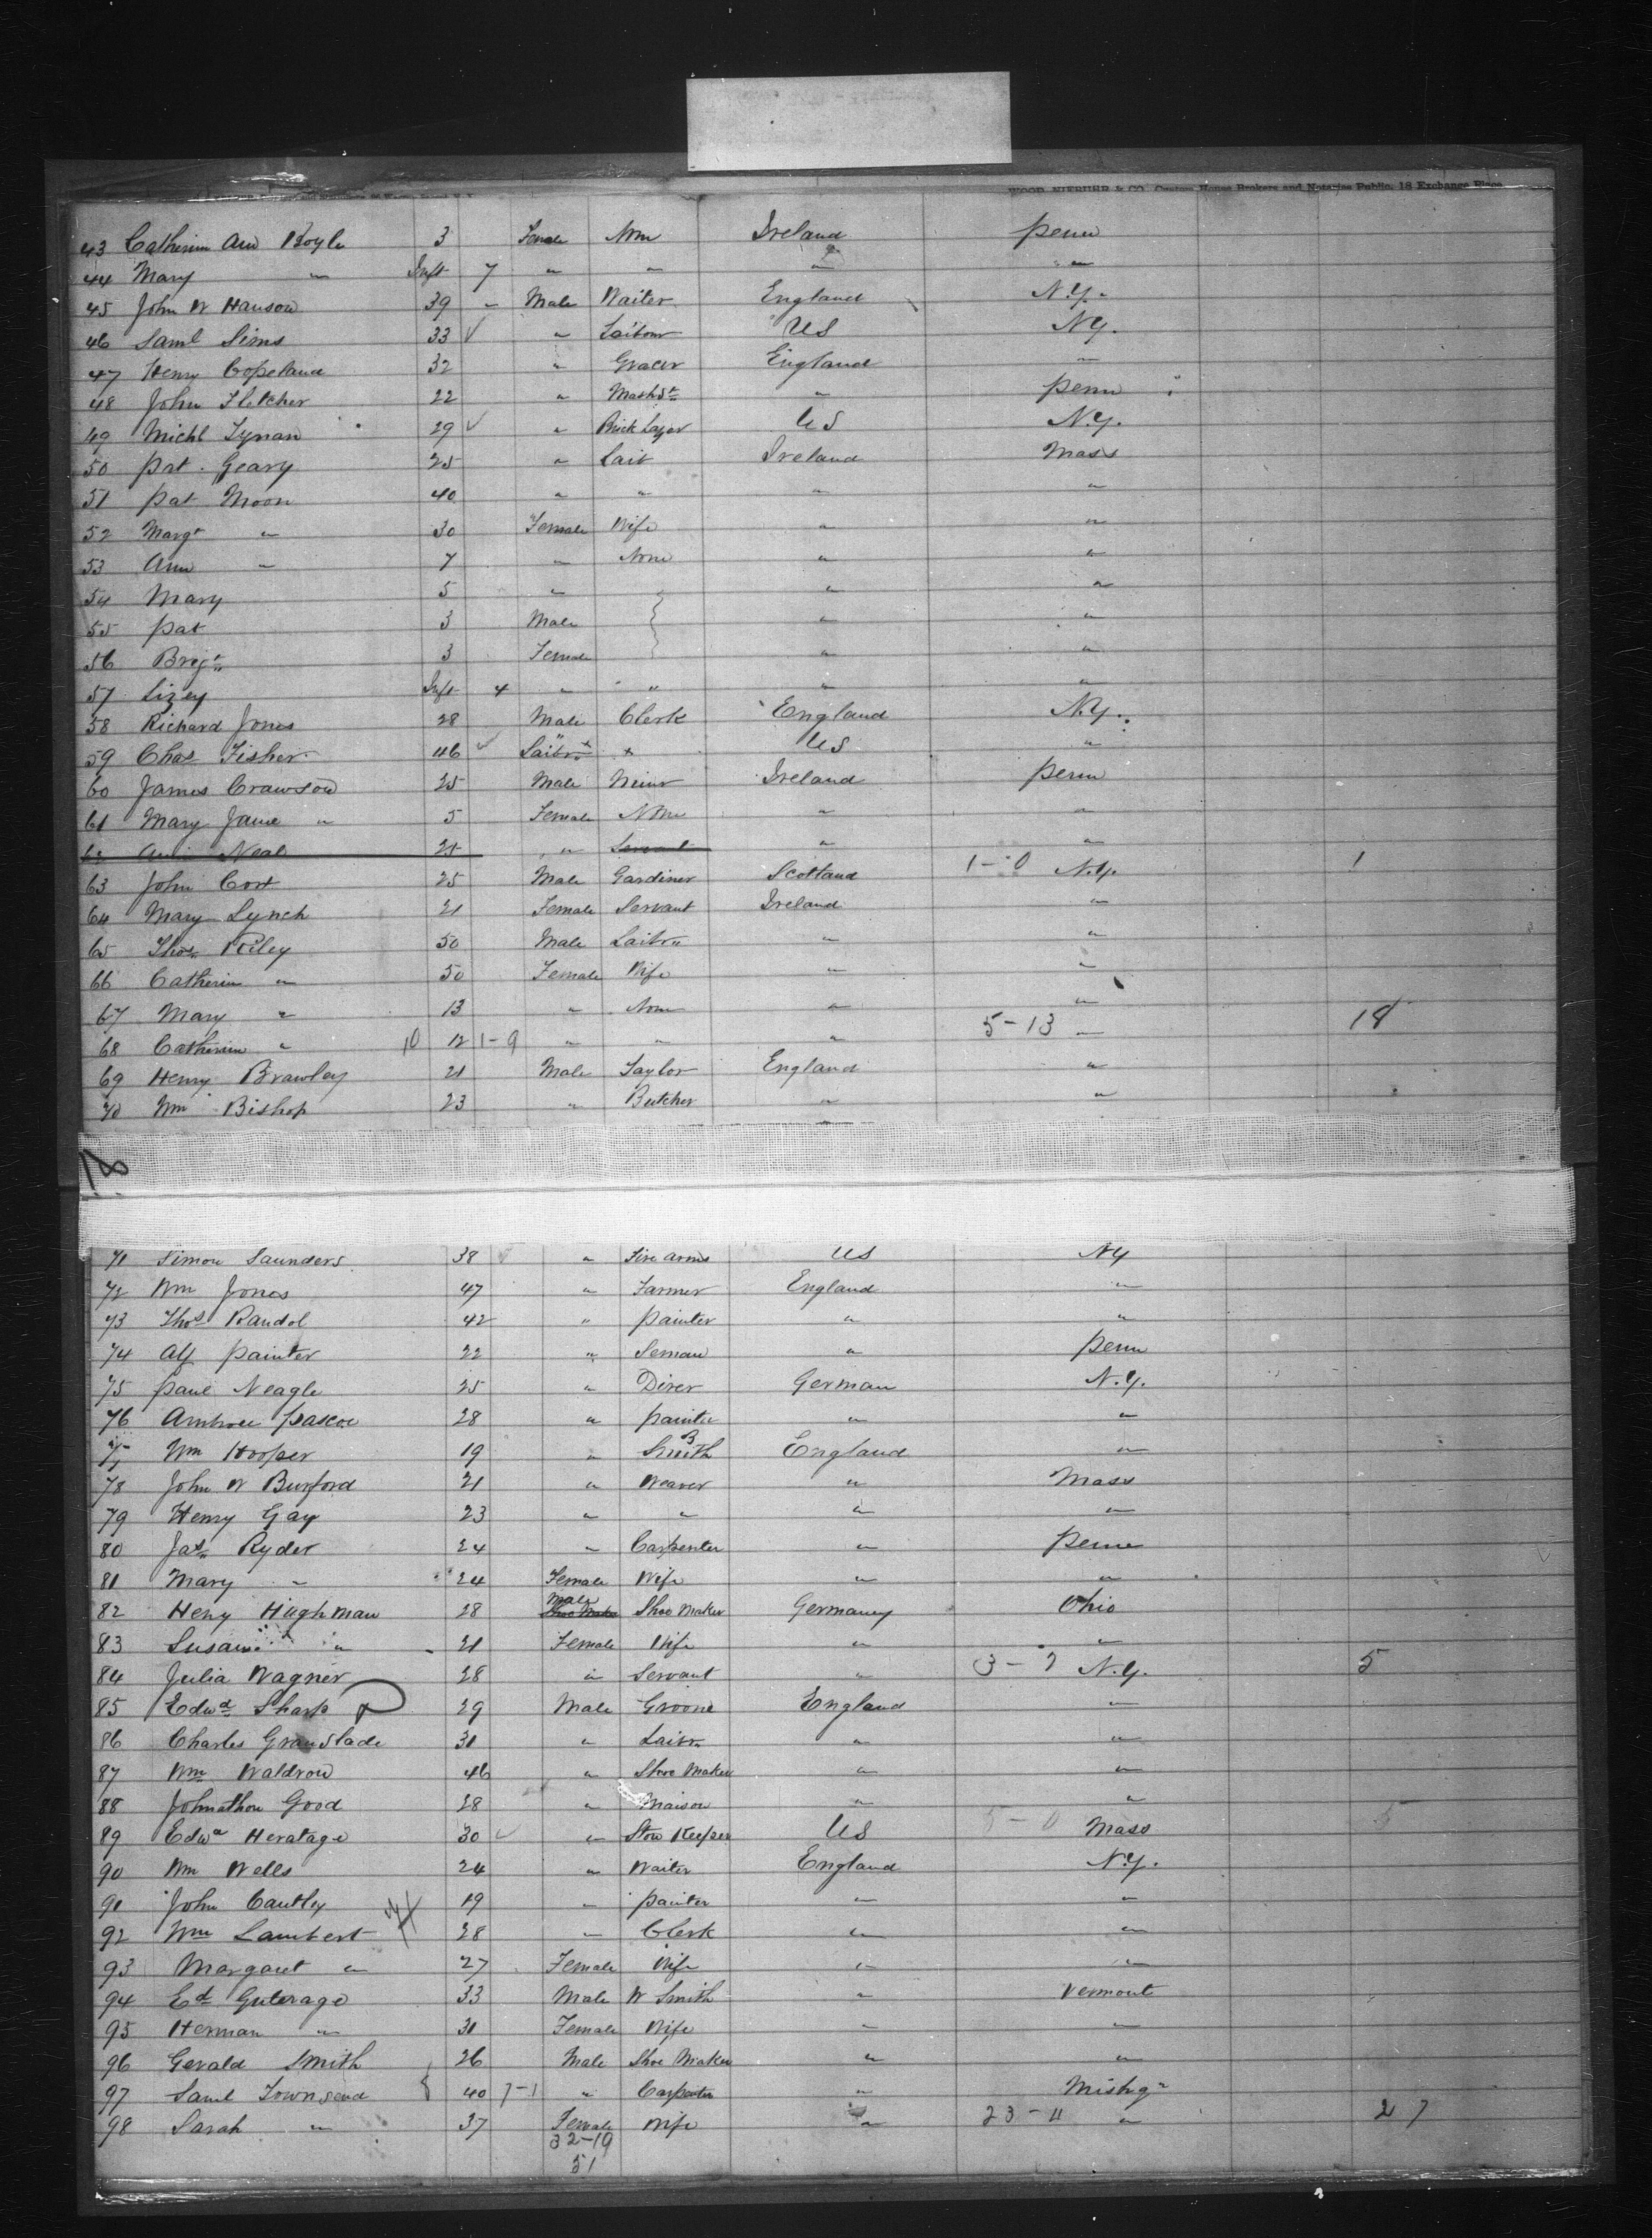 WOOD, NIEBUHR & CO., Custom House Brokers and Notaries Public, 18 Exchange Place
43 Catherine Ann Boyle 3 Female None Ireland Penn
44 Mary " Inft 7 " " " "
45 John W Hanson 39 " Male Waiter England N.Y.
46 Saml Sims 33 ✓ " Labour US N.Y.
47 Henry Copeland 32 " Grocer England "
48 John Fletcher 22 " " Penn
49 Michl Tynan 29 ✓ " Brick Layer US N.Y.
50 Pat. Geary 25 " Labr Ireland Mass
51 Pat Moon 40 " " " "
52 Margt " 30 Female Wife " "
53 Ann " 7 " None " "
54 Mary 5 " " "
55 Pat 3 Male " "
56 Brigt 3 Female " "
57 Lizey Inft 4 " " " "
58 Richard Jones 28 Male Clerk England N.Y.
59 Chas Fisher 46 ✓ Labr x x US "
60 James Crawson 25 Male Minr Ireland Penn
61 Mary Jane " 5 Female None " "
62 Ann Neal 21 " Servant " "
63 John Cort 25 Male Gardiner Scotland 1-0 N.Y. 1
64 Mary Lynch 21 Female Servant Ireland "
65 Thos Riley 50 Male Labr " "
66 Catherin " 50 Female Wife " "
67 Mary " 13 " None " "
68 Catherin " 10 12 1-9 " " " 5-13 " 18
69 Henry Brawley 21 Male Taylor England "
70 Wm Bishop 23 " Butcher " "
18
71 Simon Saunders 38 " Fire Arms US NY
72 Wm Jones 47 " Farmer England "
73 Thos Randol 42 " Painter " "
74 Alf Painter 22 " Seman " Penn
75 Paul Neagle 25 " Direr German N.Y.
76 Ambrose Pascoe 28 " Painter " "
77 Wm Hooper 19 " B Smith England "
78 John W Burford 21 " Weaver " Mass
79 Henry Gay 23 " " " "
80 Jas Ryder 24 " Carpenter " Penn
81 Mary " 24 Female Wife " "
82 Heny Highman 28 Male Shoe Maker Shoe Maker Germany Ohio
83 Susan " 21 Female Wife " "
84 Julia Wagner 28 " Servant " 3-2 N.Y. 5
85 Edwd Sharp 29 Male Groom England "
86 Charles Granslade 31 " Labr " "
87 Wm Waldron 46 " Shoe Maker " "
88 Johnathon Good 28 " Maison " "
89 Edwd Heratage 30 ✓ " Stow Keeper US 5-0 Mass 5
90 Wm Wells 24 " Waiter England N.Y.
91 John Cautley 19 " Painter " "
92 Wm Lambert 28 " Clerk " "
93 Margaret " 27 Female Wife " "
94 Ed Guterage 33 Male W Smith " Vermont
95 Herman " 31 Female Wife " "
96 Gerald Smith 26 Male Shoe Maker " "
97 Saml Townsend 40 7-1 " Carpenter "
98 Sarah " 37 Female Wife " 23-4 " 27
32-19
51